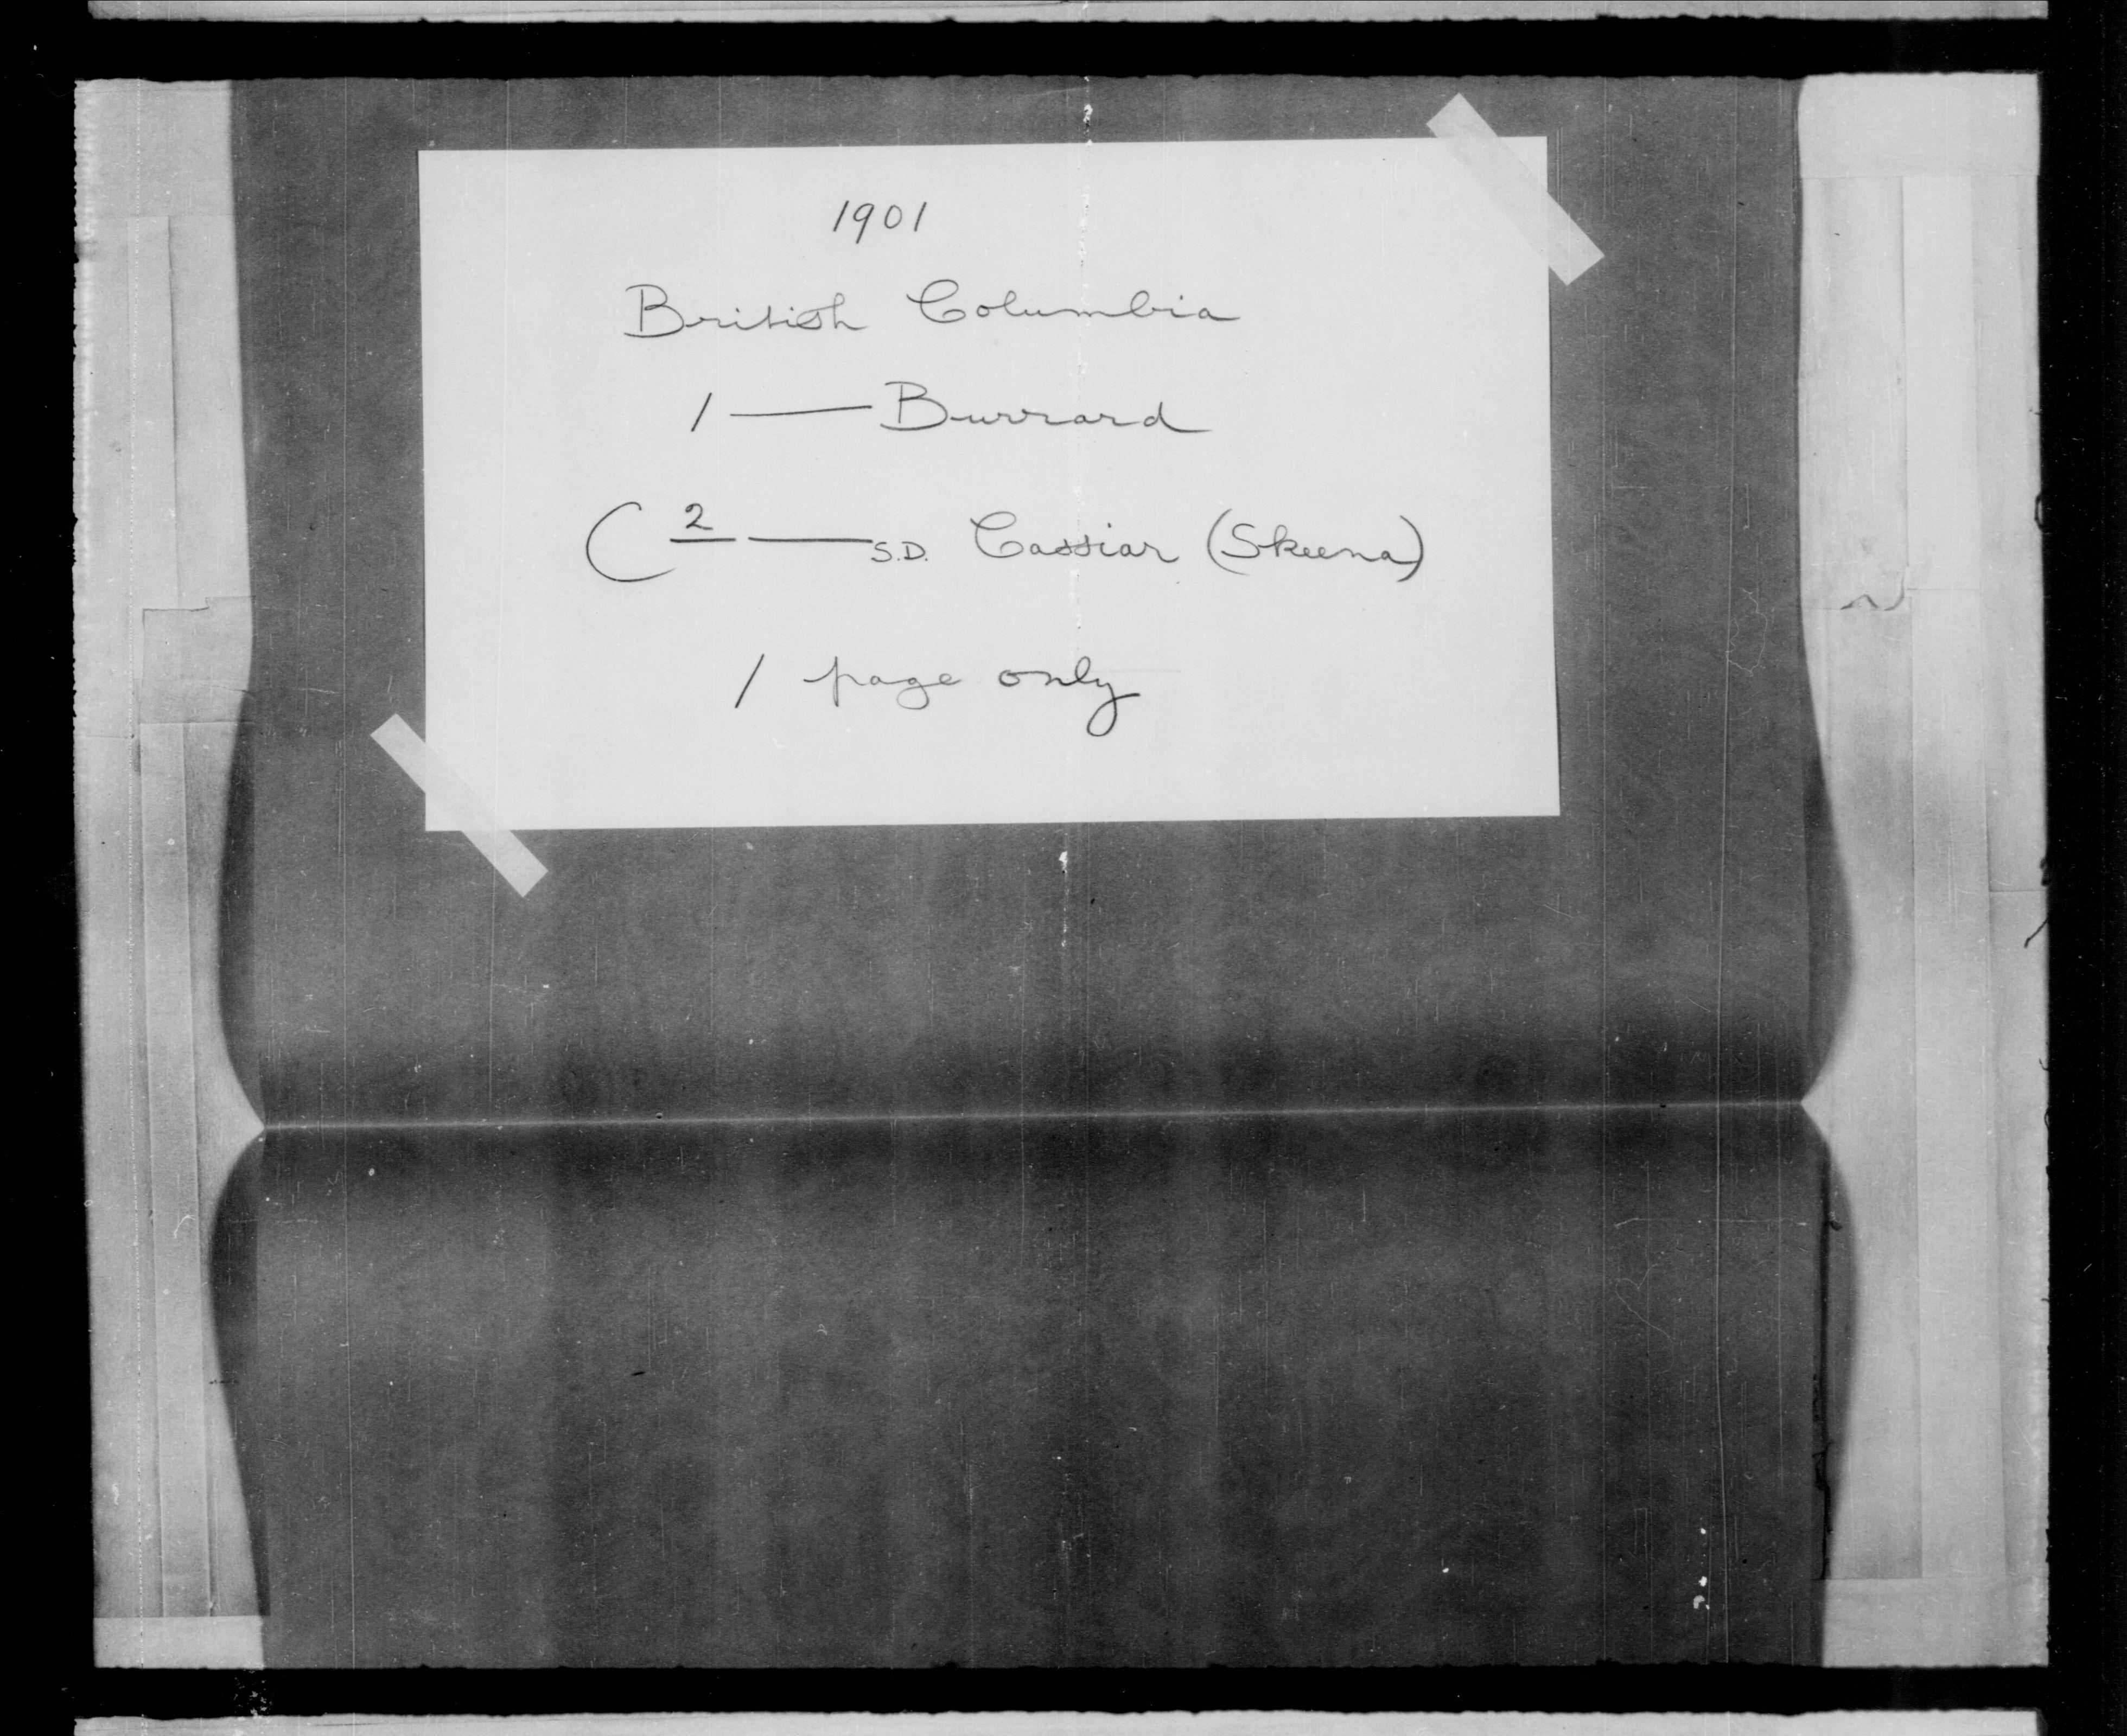 1901
British Columbia
1 — Burrard
( 2 — S.D. Cassiar (Skeena)
1 page only